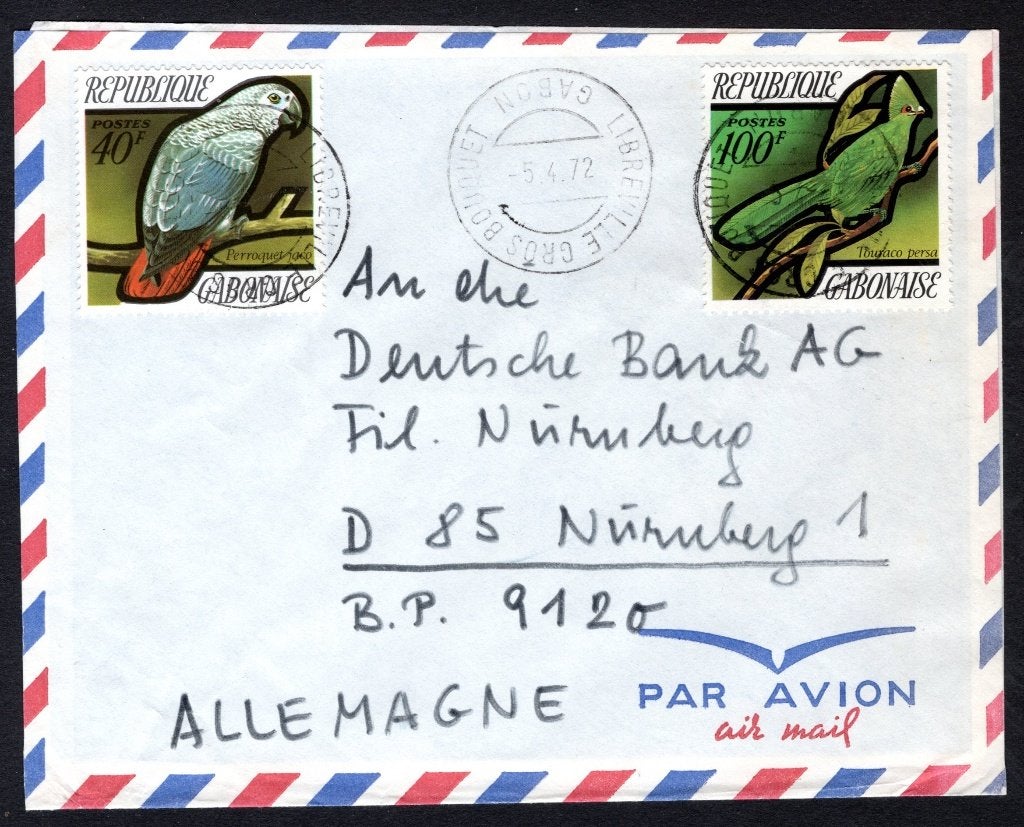 REPUBLIQUE
POSTES
40F
Perroquet jaco
GABONAISE
LIBREVILLE GROS BOUQUET
GABON
-5.4.72
REPUBLIQUE
POSTES
100F
Touraco persa
GABONAISE
An die
Deutsche Bank AG
Fil. Nürnberg
D 85 Nürnberg 1
B.P. 9120
ALLEMAGNE
PAR AVION
air mail